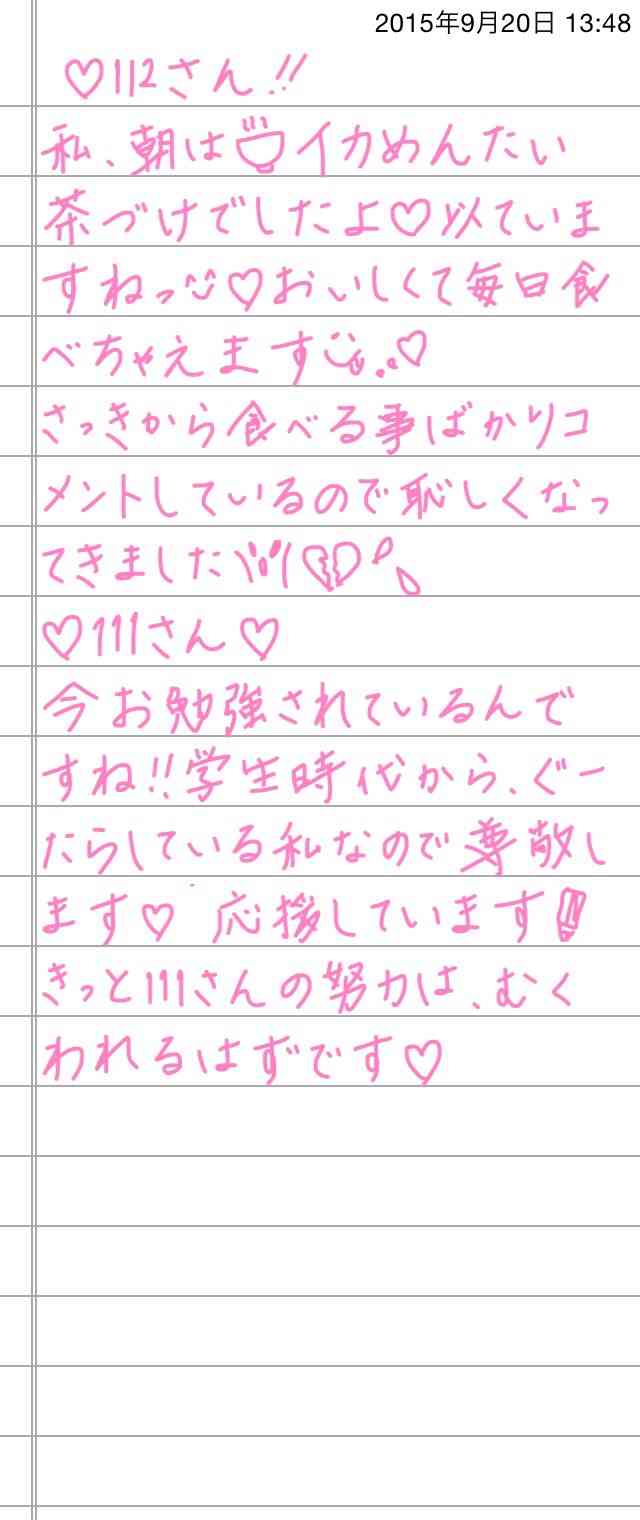 2015年9月20日 13:48
♡112さん!!
私、朝はイカめんたい
茶づけでしたよ♡以ていま
すねっ♡おいしくて毎日食
べちゃえます♡
さっきから食べる事ばかりコ
メントしているので恥しくなっ
てきました
♡111さん♡
今お勉強されているんで
すね!!学生時代から、ぐー
たらしている私なので尊敬し
ます♡ 応援しています
きっと111さんの努力は、むく
われるはずです♡